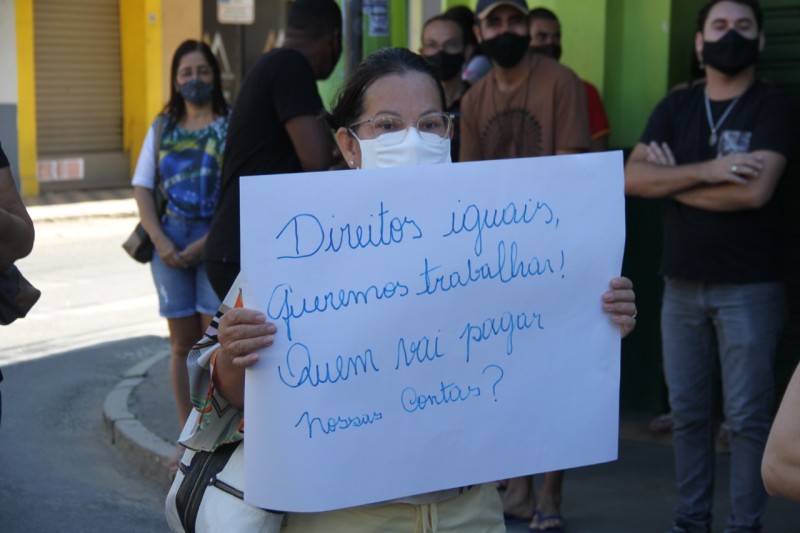 Direitos iguais,
Queremos trabalhar!
Quem vai pagar
nossas contas?